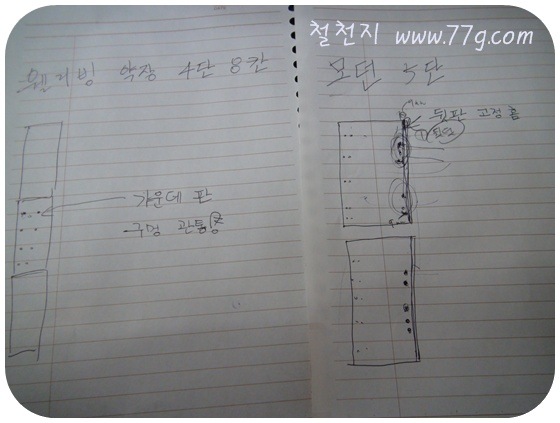 철천지 www.77g.com
웰리빙 약장 4단 8칸
모던 5단
뒤판 고정홈
가운데 판
-구멍 관통